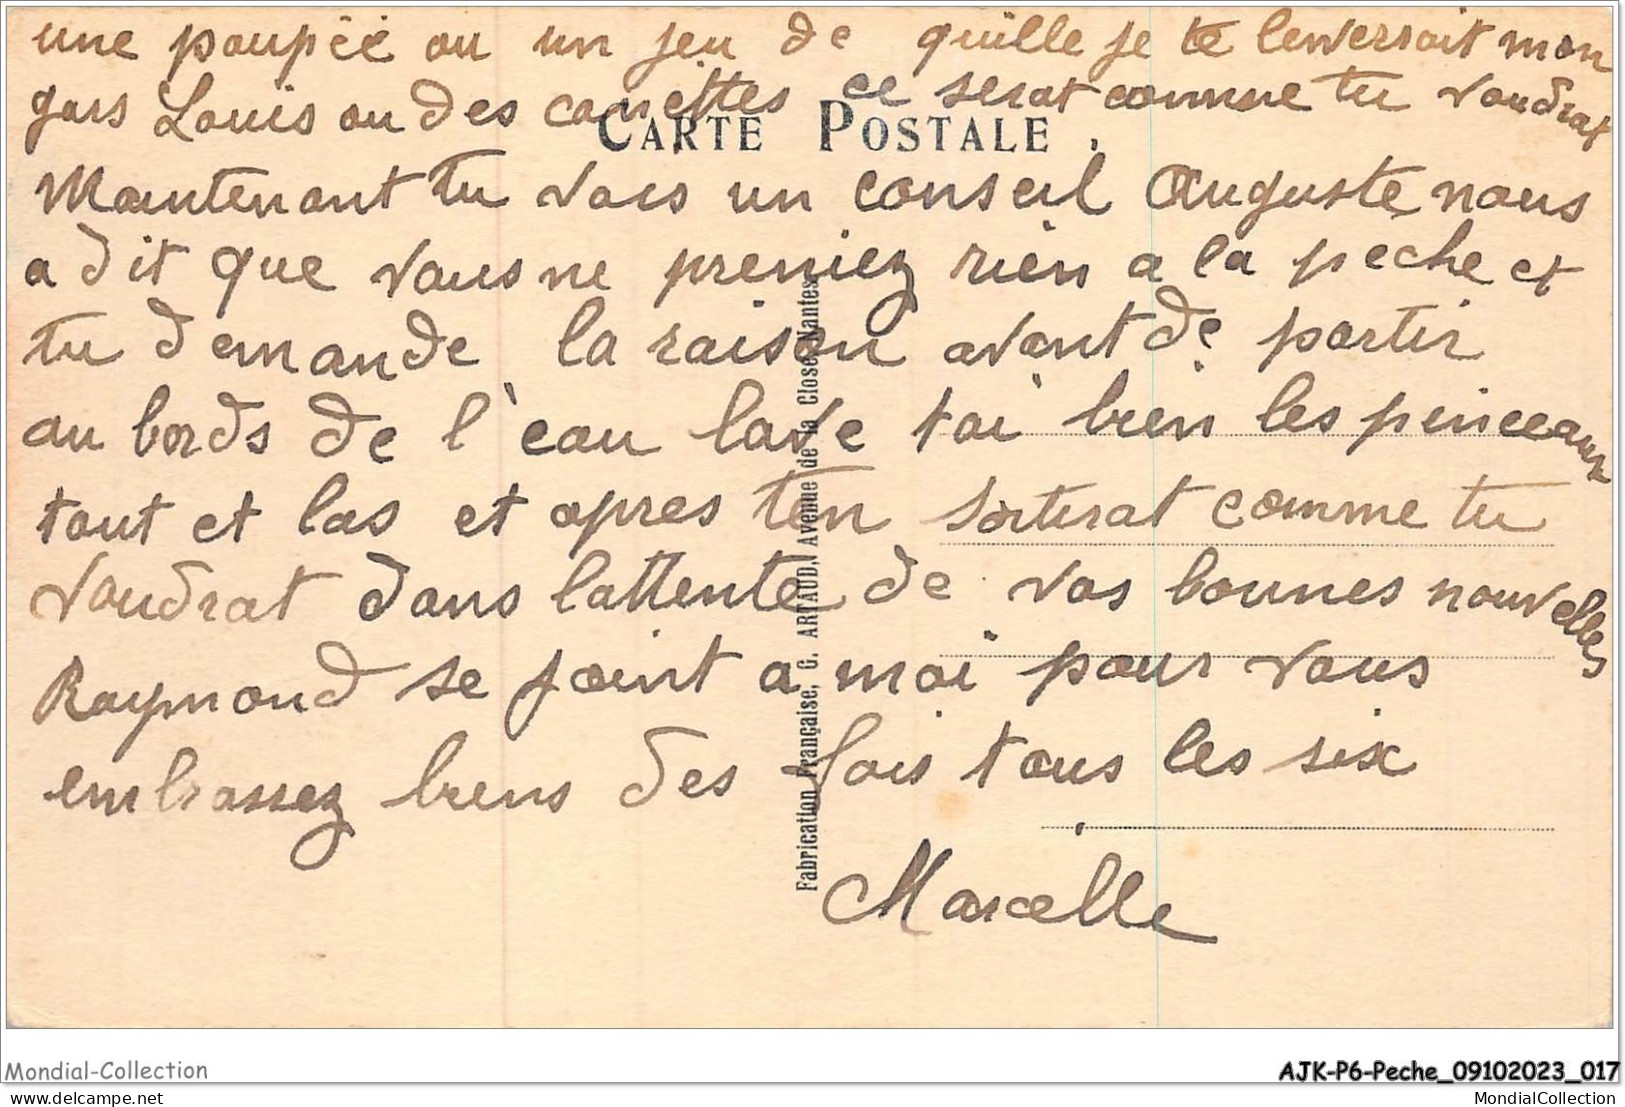 une poupéé ou un jeu de quille je te lenverrait mon
gars Louis ou des canettes ce serat comme tu voudrat
CARTE POSTALE
Maintenant tu vais un conseil Auguste nous
a dit que vous ne preniez rien a la peche et
tu demande la raison avant de partir
au bords de l'eau lave toi bien les pinceaux
tout et las et apres ten sortirat comme tu
voudrat dans lattente de vos bonnes nouvelles
Raymond se joint a moi pour vous
embrassez biens des fois tous les six
Marcelle
Fabrication Française, G. ARTAUD, Avenue de la Close, Nantes
Mondial-Collection
AJK-P6-Peche_09102023_017
delcampe.net
MondialCollection